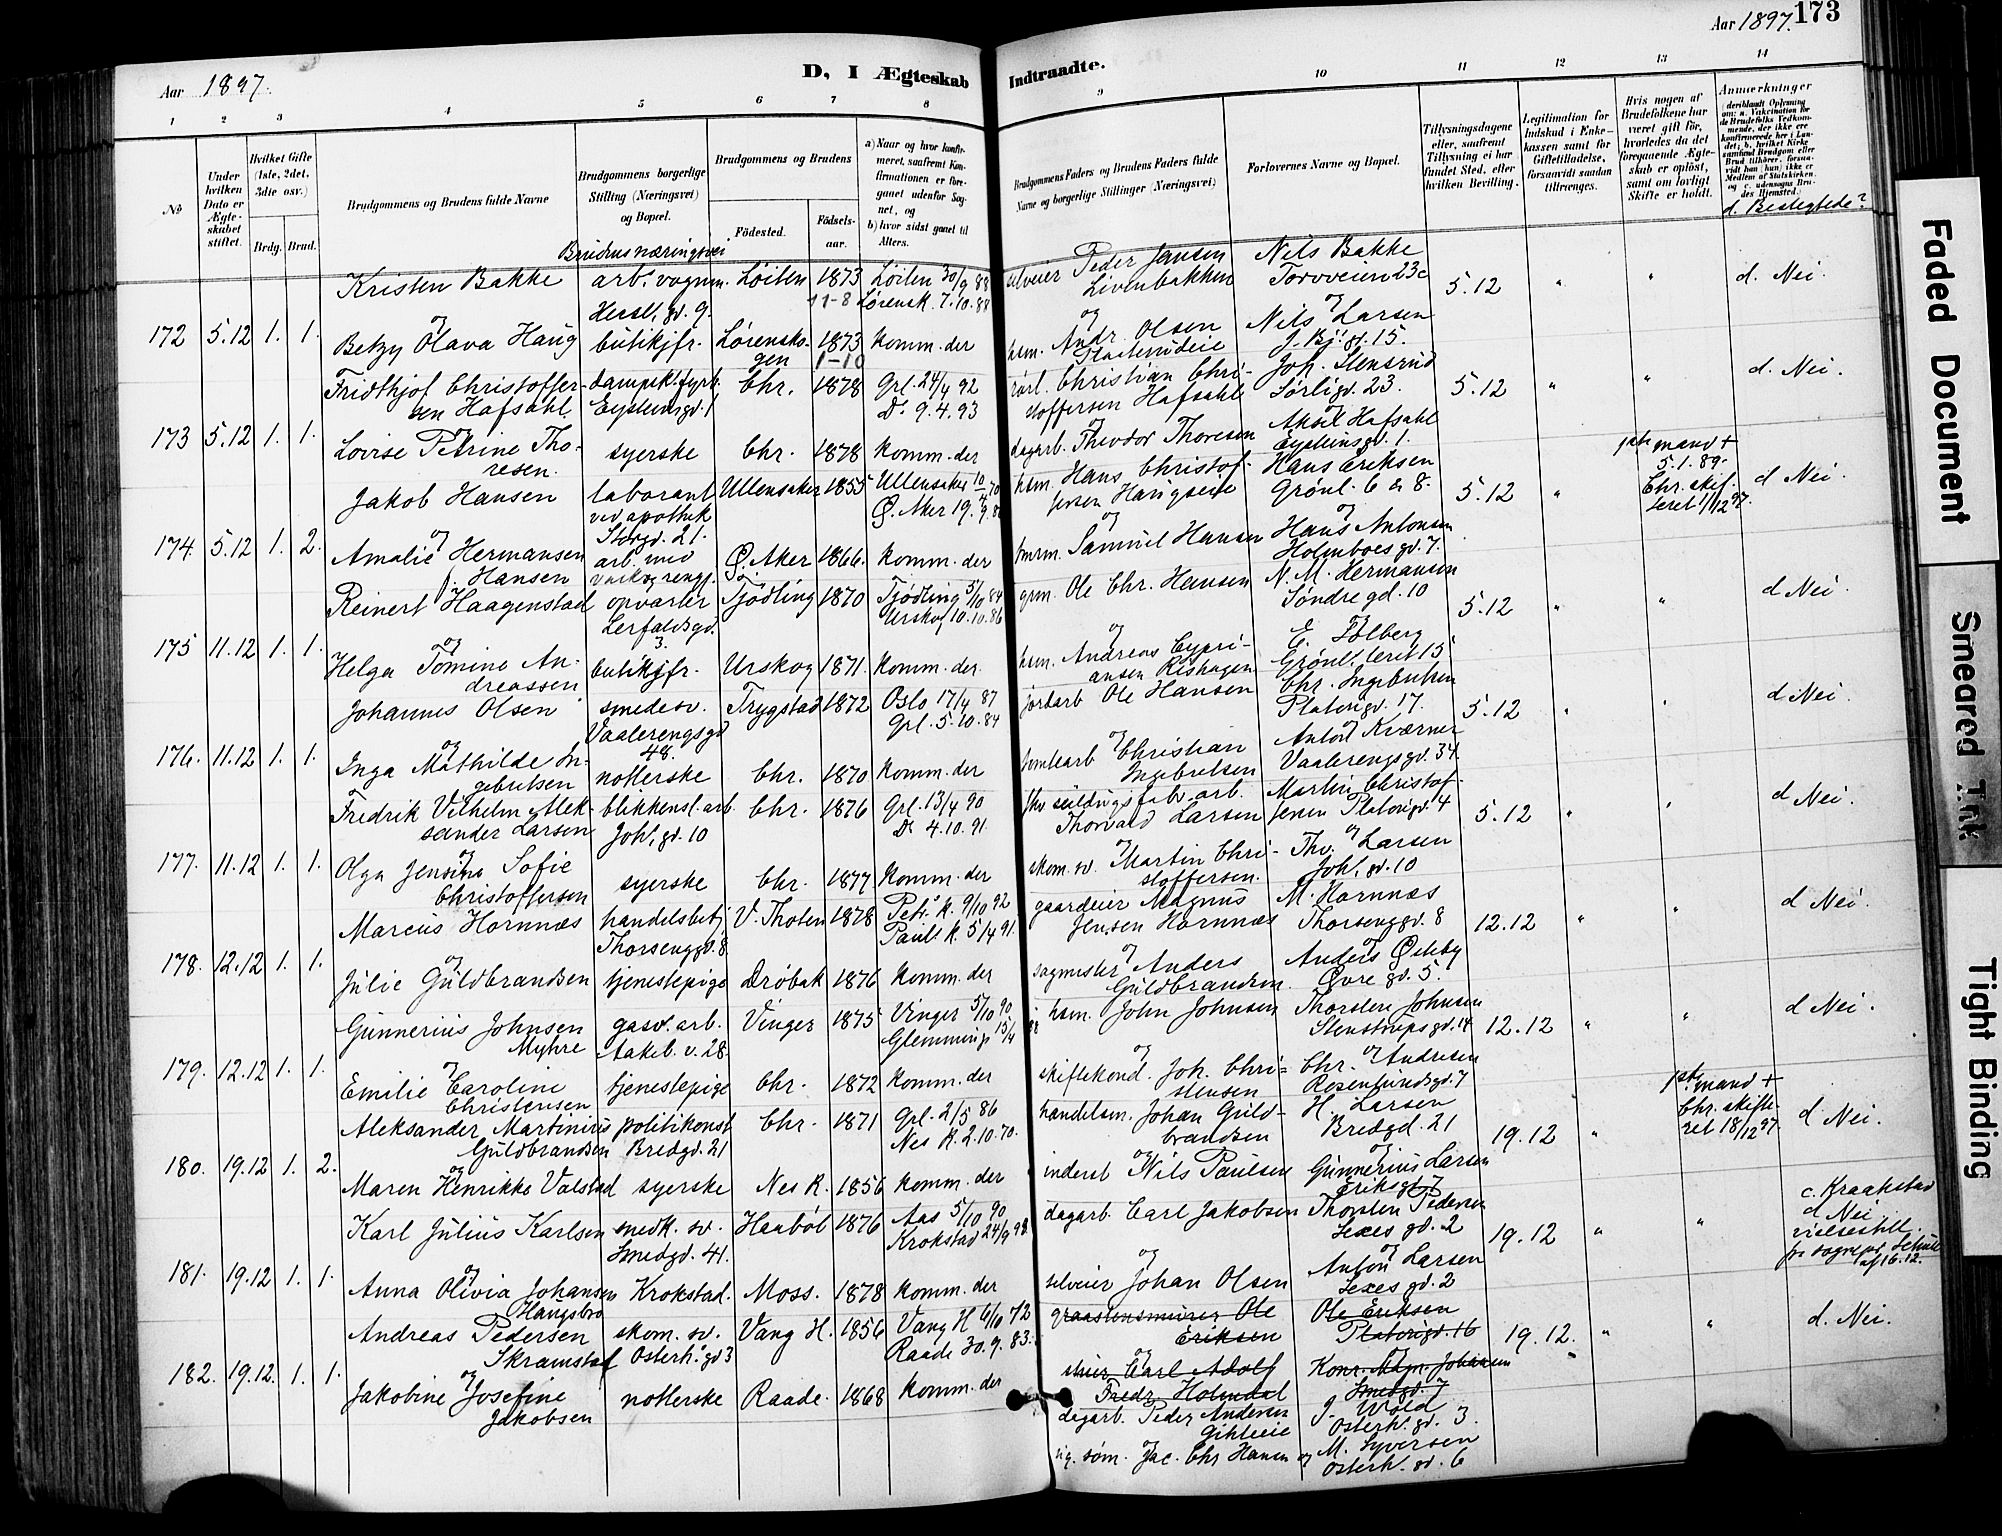 Aar 1897.
D, I Ægteskab
Indtraadte.
Aar 1897. 173
1 2 3 4 5 6 7 8 9 10 11 12 13 14
No
Under hvilken Dato er Ægteskabet stiftet.
Hvilket Gifte (1ste, 2det, 3die osv.)
Brdg. Brud.
Brudgommens og Brudens fulde Navne
Brudgommens borgerlige Stilling (Næringsvei) og Bopæl.
Brudens næringsvei
Brudgommens og Brudens
Fødested. Fødsels-aar.
a) Naar og hvor konfirmeret, saafremt Konfirmationen er foregaaet udenfor Sognet, og
b) hvor sidst gaaet til Alters.
Brudgommens Faders og Brudens Faders fulde Navne og borgerlige Stillinger (Næringsvei)
Forlovernes Navne og Bopæl.
Tillysningsdagene eller, saafremt Tillysning ei har fundet Sted, efter hvilken Bevilling.
Legitimation for Indskud i Enkekassen samt for Giftetilladelse, forsaavidt saadan tiltrænges.
Hvis nogen af Brudefolkene har været gift før, hvorledes da det foregaaende Ægteskab er opløst, samt om lovligt Skifte er holdt.
Anmerkninger
d. Beslegtede?
172 5.12 1. 1.
Kristen Bakke arb. vognm. Løiten 1873 Løiten 30/9 88
Hersl. gd. 9. 11-8 Lørensk. 7.10.88
selveier Peder Jansen Nils Bakke
Livenbakken Torvveien 23c 5.12 " " d. Nei.
og
Betzy Olava Haug butikjfr. Lørensko- 1873 komm. der
gen 1-10
hsm. Andr. Olsen Nils Larsen
J. Bj. gt. 15.
173 5.12 1. 1.
Fridthjof Christoffer- dampsk. fyrb. Chr. 1878 Grl. 24/4 92
sen Hafsahl Eysteinsgd. 1 Do 9.4.93
Christian Chri- Joh. Stensrud
stoffersen Hafsahl Sørligd. 23. 5.12 " " d. Nei.
og
Lovise Petrine Tho- syerske Chr. 1878 komm. der
resen.
dagarb. Theodor Thoresen Aksel Hafsahl
Eysteinsgd. 1.
174. 5.12 1. 2.
Jakob Hansen laborant Ullensaker 1855 Ullensaker 10/4 70
ved apothek Ø. Aker 19.9.8
Storgd. 21.
hsm. Hans Christof- Hans Eriksen
fersen Haugseie Grønl. 6 & 8. 5.12 "
1ste mand +
5.1.89.
Chr. skif-
teret 1/12 97. d Nei.
og
Amalie Hermansen arb. med Ø. Aker 1866. komm. der
f. Hansen vask og rengj.
Samuel Hansen Hans Antonsen
Holmboes gd. 7.
175 11.12 1. 1.
Reinert Haagenstad opvarter Tjødling 1870 Tjødling 5/10 84
Lerfaldsgd. Urskog 10.10.86
3.
grm. Ole Chr. Hansen N. M. Hermansen
Søndre gd. 10 5.12 " " d Nei
og
Helga Tomine An- butikjfr. Urskog 1871. komm. der
dreassen
hsm. Andreas Cypri- E. Solberg
ansen Rishagen Grønl. leret 15
176. 11.12 1. 1.
Johannes Olsen smedesv. Trygstad 1872 Oslo 17/4 87
Vaalerengsgd Grl. 5.10.84
48.
jordarb Ole Hansen Chr. Ingebretsen
Platougd. 17. 5.12 " " d Nei.
og
Inga Mathilde In- notterske Chr. 1870 komm. der
gebretsen
Christian Anton Kværner
Ingebretsen Vaalerengsgd. 34
177. 11.12 1. 1.
Fredrik Vilhelm Alek- blikkensl. arb. Chr. 1876 Grl. 13/4 90
sander Larsen Johl. gd. 10 Do 4.10.91
seildugsfabr. arb. Martin Christof-
Thorvald Larsen fersen Platougd. 4 5.12 " " d Nei.
og
Olga Jensine Sofie syerske Chr. 1877 komm. der
Christoffersen
skom. sv. Martin Chri- Thv. Larsen
stoffersen. Johl. gd. 10
178. 12.12 1. 1.
Marcus Hornnæs handelsbetj. V. Thoten 1878 Petr. K. 9/10 92
Thorsenggd. 8 Pauls K. 5/4 91
gaardeier Magnus M. Hornnæs
Jensen Hornnæs Thorsenggd. 8 12.12 " " d Nei.
og
Julie Guldbrandsen tjenestepige Drøbak 1876 komm. der
sagmester Anders Anders Ødeby
Guldbrandsen. Øvre gd. 5.
179. 12.12 1. 1.
Gunnerius Johnsen gasv. arb. Vinger 1875 Vinger 5/10 90
Myhre Aakeb. v. 28. Glemminge 15/4
hsm. John Johnsen Thorsten Johnsen
Stenstrupsgd. 14 12.12 " " d Nei.
og
Emilie Caroline tjenestepige Chr. 1872 komm. der
Christensen
skiftekond. Joh. Chri- Chr. Andresen
stensen Rosenlundsgd. 7
180. 19.12 1. 2.
Aleksander Martinius politikonst Chr. 1871 Grl. 2/5 86
Guldbrandsen Bredgd. 21 Nes K. 2.10.70.
handelsm. Johan Guld- H. Larsen
brandsen Bredgd. 21 19.12 "
1ste mand +
Chr. skifte-
ret 18/12 97. d Nei.
og
Maren Henrikke Valstad syerske Nes R. 1856 komm. der
inderst Nils Paulsen Gunnerius Larsen
Eriksgd. 7
181. 19.12 1. 1.
Karl Julius Karlsen snedk. sv. Haabøl 1876 Aas 5/10 90
Smedgd. 41. Krokstad 24/9 92
dagarb. Carl Jakobsen Thorsten Pedersen
Sexes gd. 2 19.12 " "
c. Kraakstad
d Nei
vielsestill.
fr sognepr. Schüll
af 16.12.
og
Anna Olivia Johansen Krokstad. Moss. 1878 komm. der
Haugsbro
selveier Johan Olsen Anton Larsen
Sexes gd. 2
182. 19.12. 1. 1.
Andreas Pedersen skom. sv. Vang H. 1856 Vang H 6/10 72
Skramstad Osterh. gd 3 Raade 30.9.83.
graastensmurer Ole Ole Eriksen
Eriksen Platougd. 16 19.12. " " d. Nei.
og
Jakobine Josefine notterske Raade. 1868 komm. der
Jakobsen
Carl Adolf Konr. Johansen
Fredr. Holmdal Smedgd. 7
dagarb. Peder Andersen J. Wold
Gihleeie Osterh. gd. 3.
og
sig. søm. Jac. Chr Hansen og M. Syversen
Osterh. gd. 6
Faded Document
Smeared Ink
Tight Binding